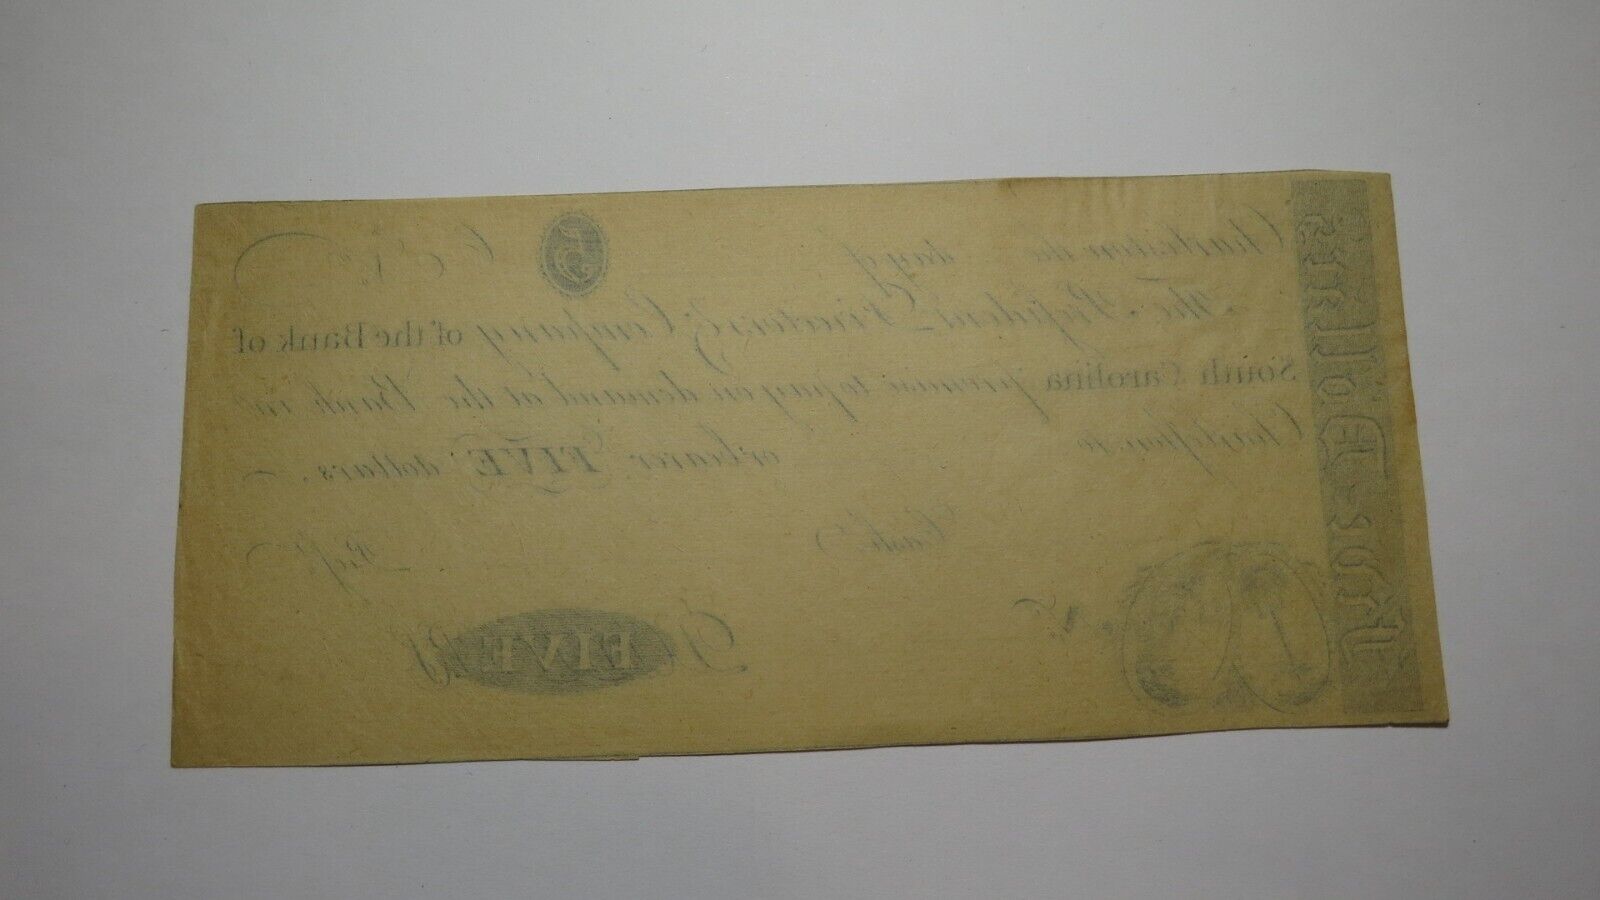 Charleston the day of 5
The President Directors & Company of the Bank of
South Carolina promise to pay on demand at the Bank in
Charleston to or bearer FIVE dollars.
Cash.r Pres.t
D FIVE